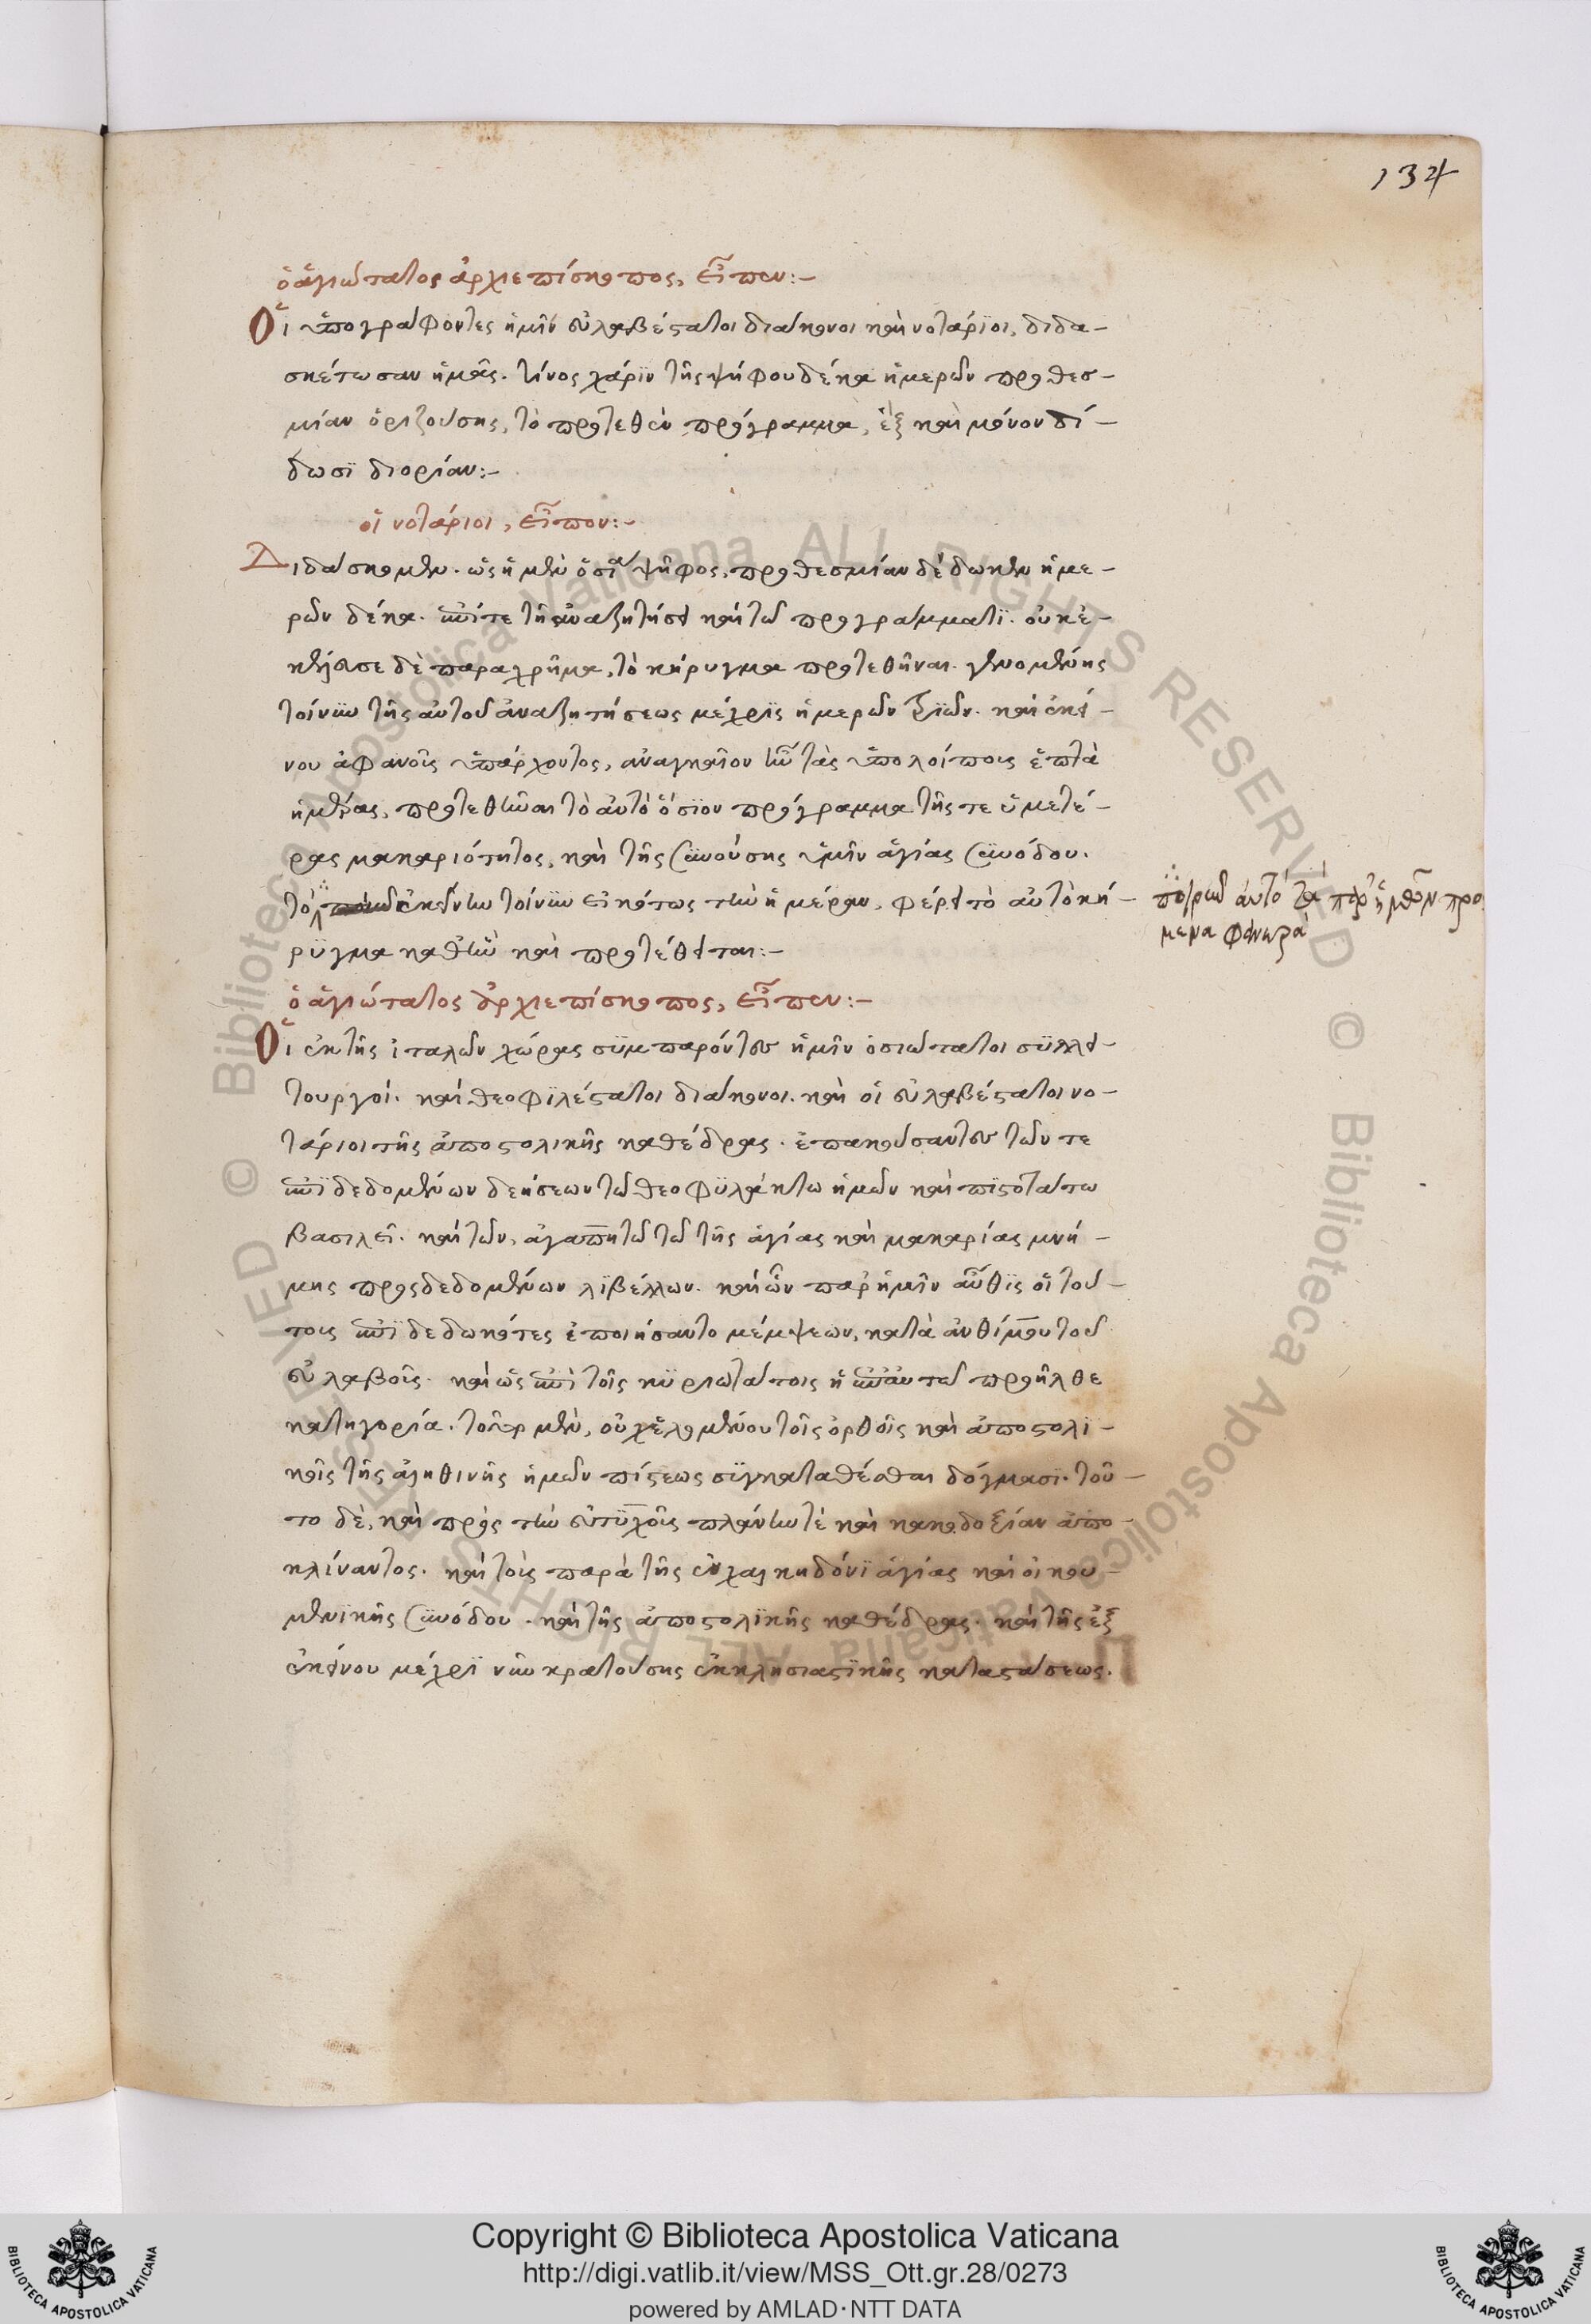 134
ὁ ἁγιώτατος ἀρχιεπίσκοπος, εἶπεν:–
Οἱ ὑπογράφοντες ἡμῖν εὐλαβέστατοι διάκονοι καὶ νοτάριοι, διδα–
σκέτωσαν ἡμᾶς. τίνος χάριν τῆς ψήφου δέκα ἡμερῶν προθεσ–
μίαν ὁριζούσης, τὸ προτεθὲν πρόγραμμα, ἓξ καὶ μόνον δί–
δωσι διορίαν:–
οἱ νοτάριοι, εἶπον:–
Διδάσκομεν. ὡς ἡ μὲν ὁσία ψῆφος, προθεσμίαν δέδωκεν ἡμε–
ρῶν δέκα. ἐπί τε τῇ ἀναζητήσει καὶ τῶ προγράμματι. οὐκ ἐ–
κέλευσε δὲ παραχρῆμα, τὸ κήρυγμα προτεθῆναι. γενομένης
τοίνυν τῆς αὐτοῦ ἀναζητήσεως μέχρις ἡμερῶν τριῶν. καὶ ἐκεί–
νου ἀφανοῦς ὑπάρχοντος, ἀναγκαῖον ἦν τὰς ὑπολοίπους ἑπτὰ
ἡμέρας, προτεθῆναι τὸ αὐτὸ ὅσιον πρόγραμμα τῆς τε ὑμετέ–
ρας μακαριότητος, καὶ τῆς συνούσης ὑμῖν ἁγίας συνόδου.
ἐκείνην τοίνυν εἰκότως τὴν ἡμέραν, φέρει τὸ αὐτὸ κή–
ρυγμα καθ' ἣν καὶ προτέθειται:–
ὁ ἁγιώτατος ἀρχιεπίσκοπος, εἶπεν:–
Οἱ ἐκ τῆς ἰταλῶν χώρας συμπαρόντες ἡμῖν ὁσιώτατοι συλλει–
τουργοί. καὶ θεοφιλέστατοι διάκονοι. καὶ οἱ εὐλαβέστατοι νο–
τάριοι τῆς ἀποστολικῆς καθέδρας. ἐπακούσαντες τῶν τε
ἐπιδεδομένων δεήσεων τῶ θεοφυλάκτω ἡμῶν καὶ πιστοτάτω
βασιλεῖ. καὶ τῶν, ἀγαπητῶ τῶ τῆς ἁγίας καὶ μακαρίας μνή–
μης προσδεδομένων λιβέλλων. καὶ ὧν παρ' ἡμῖν αὖθις οἱ τού–
τοις ἐπιδεδωκότες ἐποιήσαντο μέμψεων, κατὰ ἀνθίμου τοῦ
εὐλαβοῦς. καὶ ὡς ἐπὶ τοῖς κυριωτάτοις ἡ ἐπ' αὐτῶ προῆλθε
κατηγορία. τοῦ μὲν, οὐχ ἑλομένου τοῖς ὀρθοῖς καὶ ἀποστολι–
κοῖς τῆς ἀληθινῆς ἡμῶν πίστεως συγκαταθέσθαι δόγμασι. τοῦ–
το δὲ, καὶ πρὸς τὴν εὐτυχοῦς πλάνην τὲ καὶ κακοδοξίαν ἀπο–
κλίναντος. καὶ τοῖς παρὰ τῆς ἐν χαλκηδόνι ἁγίας καὶ οἰκου–
μενικῆς συνόδου. καὶ τῆς ἀποστολικῆς καθέδρας. καὶ τῆς ἐξ
ἐκείνου μέχρι νῦν κρατούσης ἐκκλησιαστικῆς καταστάσεως.
Copyright © Biblioteca Apostolica Vaticana
http://digi.vatlib.it/view/MSS_Ott.gr.28/0273
powered by AMLAD·NTT DATA